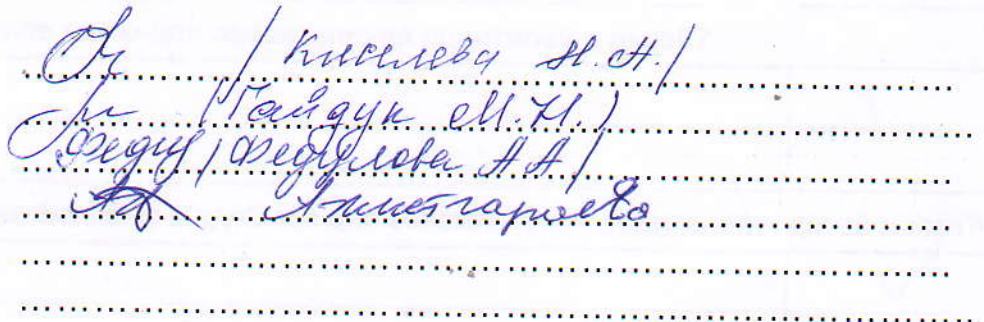 / Киселева Н.Н./
/ Гайдук М.Н./
Федул / Федулова А.А./
Ахметгараева